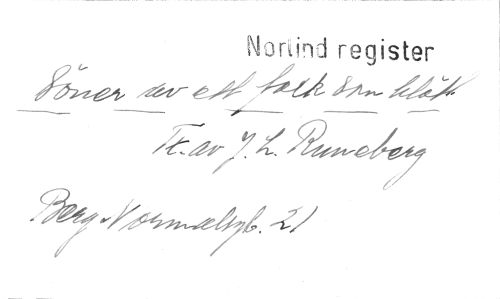 Norlind register
Söner av ett folk som blött
Tx. av J. L. Runeberg
Berg. Normalsgb. 21